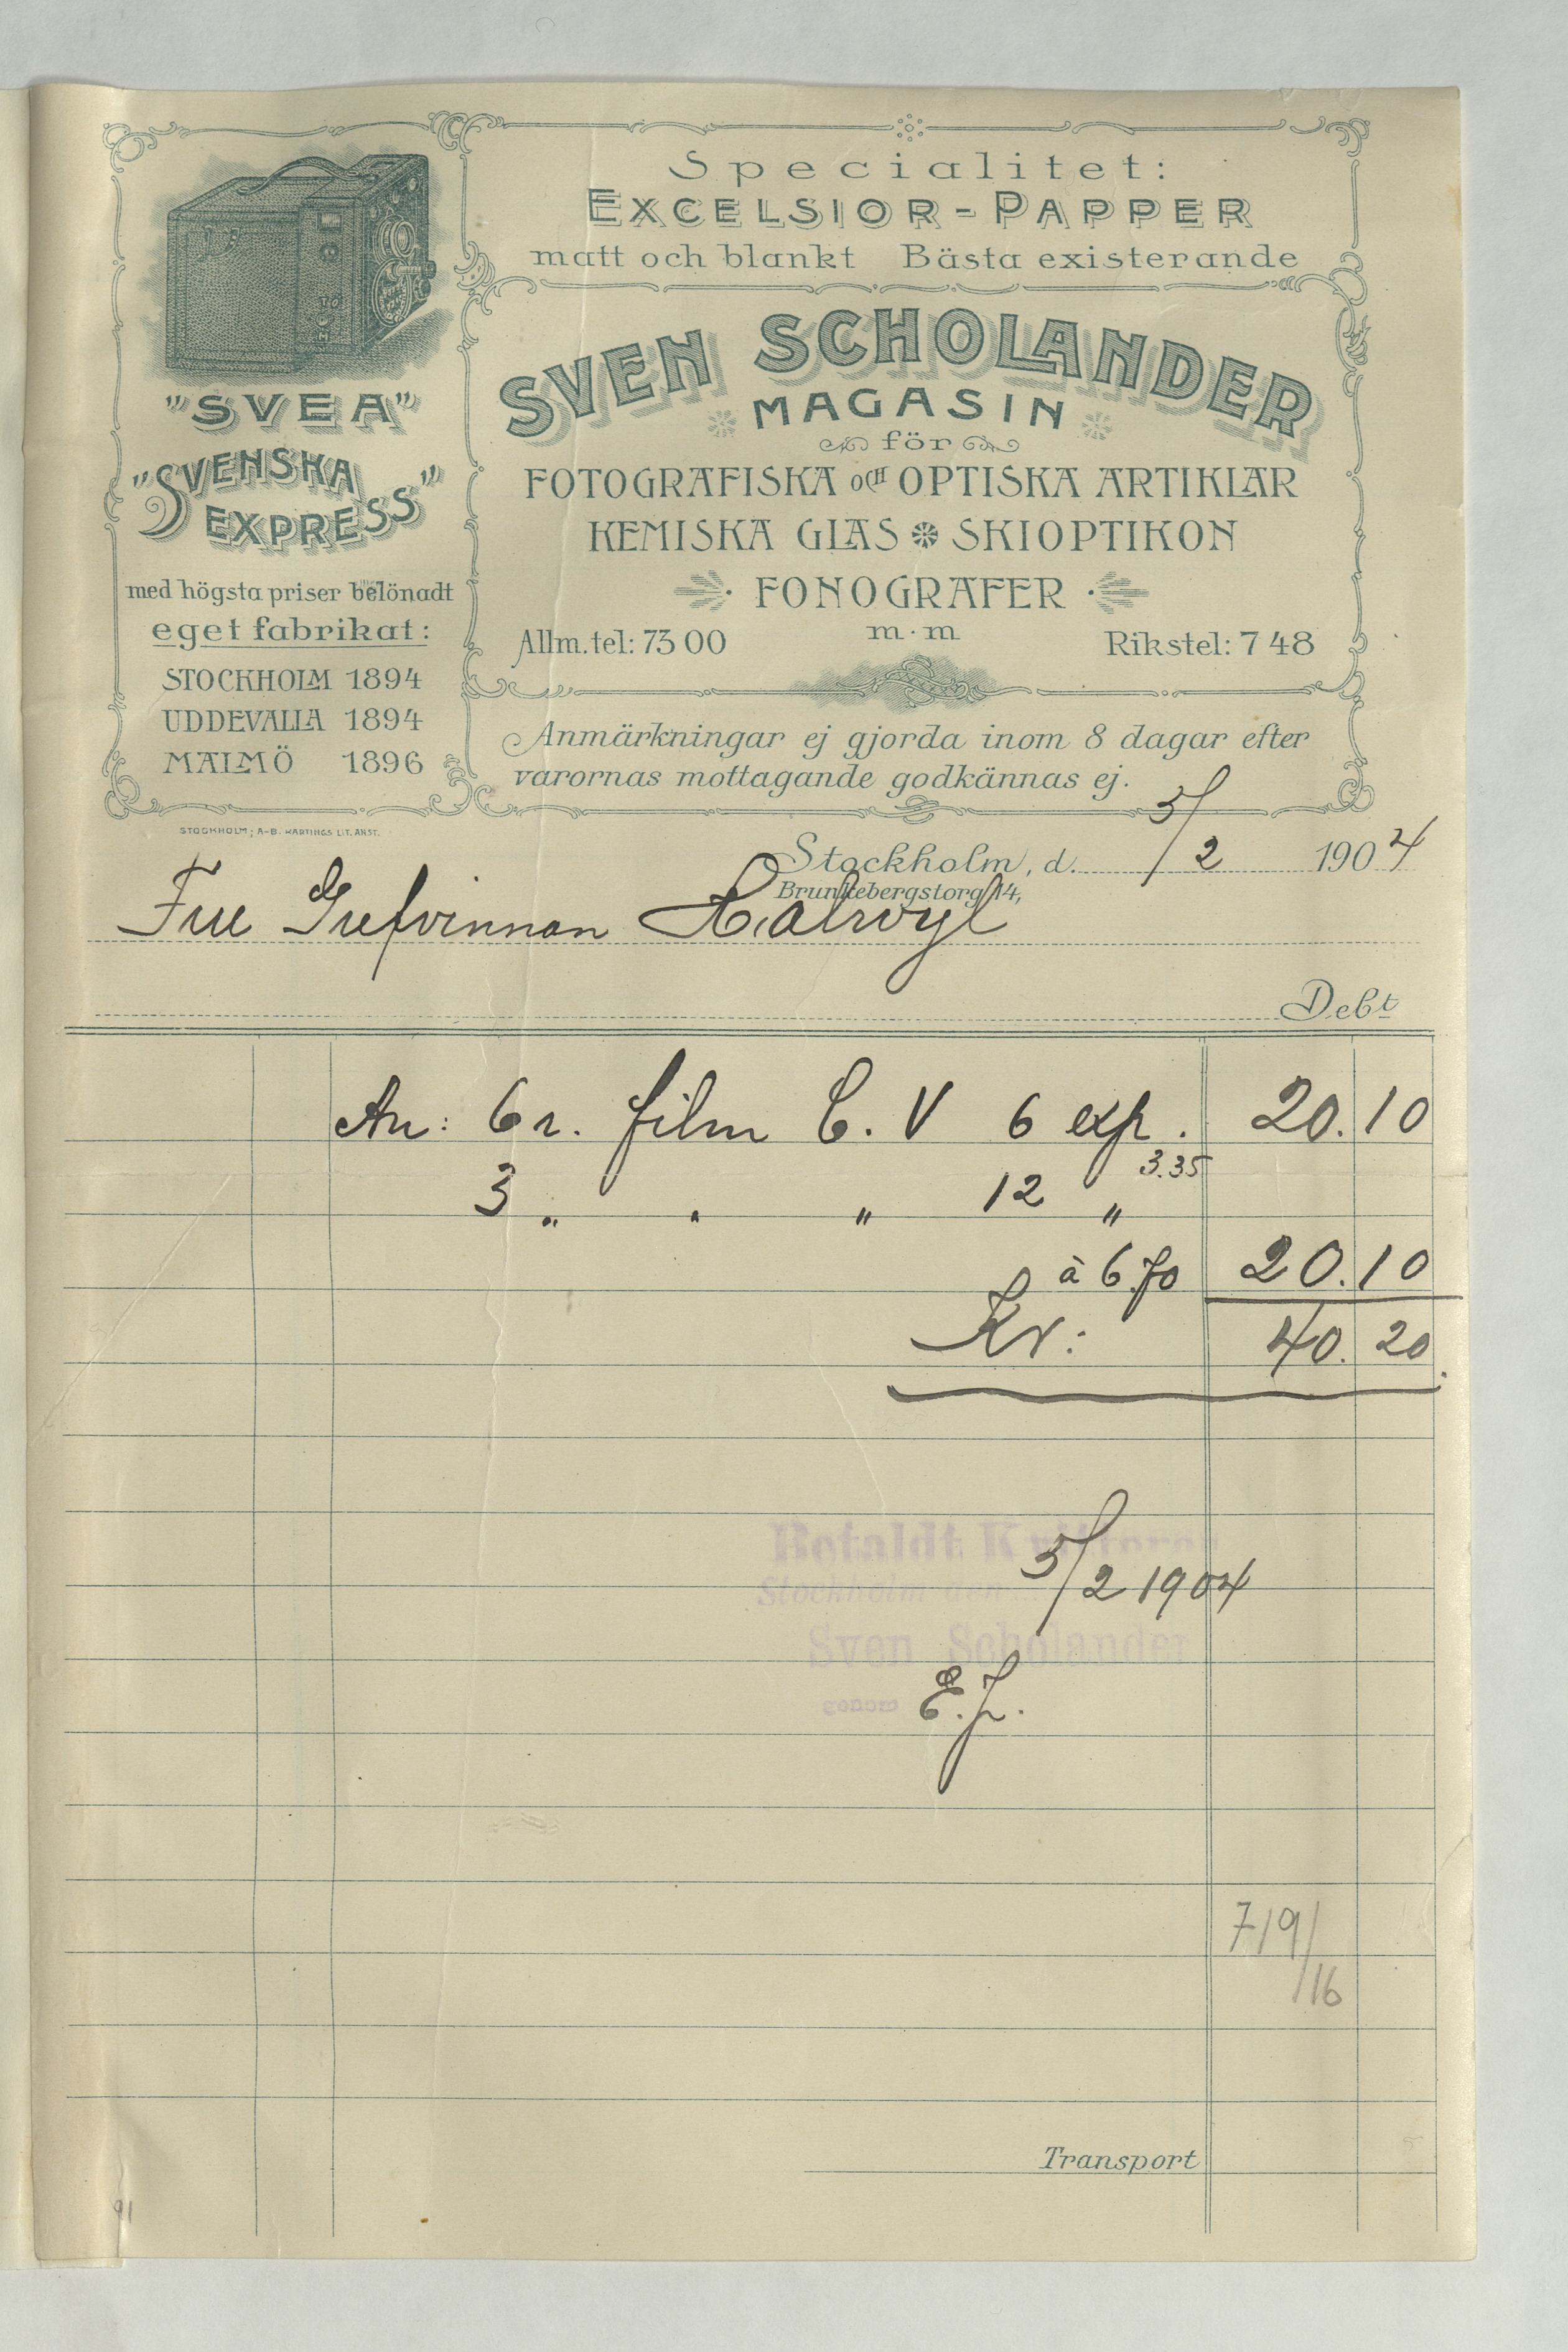 "SVEA"
"SVENSKA
EXPRESS"
med högsta priser belönadt
eget fabrikat:
STOCKHOLM 1894
UDDEVALLA 1894
MALMÖ 1896
STOCKHOLM; A-B. KARTINGS LIT. ANST.
Specialitet:
EXCELSIOR-PAPPER
matt och blankt Bästa existerande
SVEN SCHOLANDER
MAGASIN
för
FOTOGRAFISKA OCH OPTISKA ARTIKLAR
KEMISKA GLAS SKIOPTIKON
FONOGRAFER
m.m
Allm. tel: 73 00 Rikstel: 7 48
Anmärkningar ej gjorda inom 8 dagar efter
varornas mottagande godkännas ej.
Stockholm, d. 5/2 1904
Brunkebergstorg 14,
Fru Grefvinnan Halwyl
Debt
An: 6 r. film C. V 6 exp. 20.10
3.35
3 " " " 12 "
à 6.70 20.10
Kr: 40.20
Betaldt Kvitteras
Stockholm den 5/2 1904
Sven Scholander
genom E.J.
719/16
Transport
91